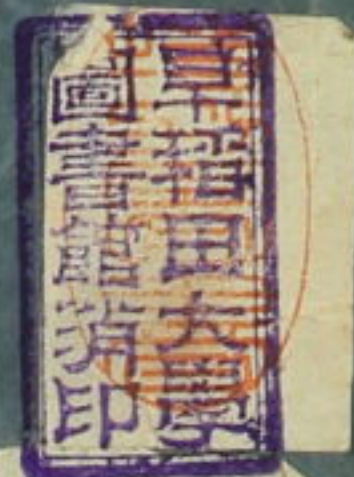 早稲田大學
圖書館消印